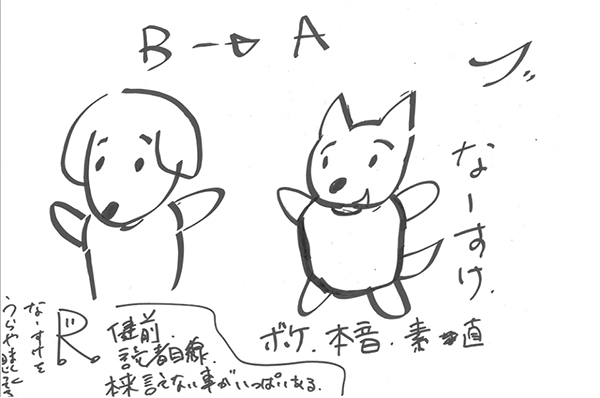 B → A
なーすけ.
ボケ.本音.素直
健前.
読者目線.
本来言えない事がいっぱいある.
なーすけを
うらやましく